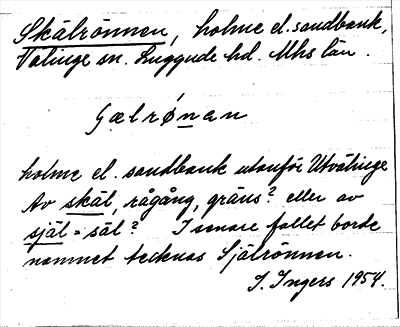 Skälrönnen, holme el. sandbank,
Välinge sn. Luggude hd. Mhs län.
sælrǿnan
holme el. sandbank utanför Utvälinge
Av skäl, rågång, gräns? eller av
själ = säl? I senare fallet borde
namnet tecknas Själrönnen.
I. Ingers 1954.